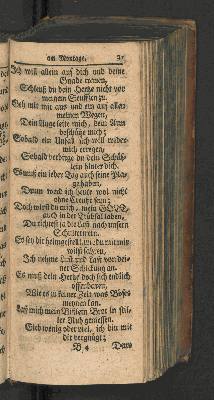 am Montage. 21
Ich will allein auf dich und deine
Gnade trauen,
Schleuß du dein Hertze nicht vor
meinen Seuffzen zu.
Geh mit mir aus und ein auf allen
meinen Wegen,
Dein Auge leite mich, dein Arm
beschütze mich;
Sobald ein Unfall sich will wider
mich erregen,
So bald verbirge du dein Schäf-
lein hinter dich.
Es muß ein jeder Tag auch seine Pla-
ge haben,
Drum werd ich heute wol nicht
ohne Creutze seyn;
Doch wirst du mich, mein GOtt,
auch in der Trübsal laben,
Du richtest ja die Last nach unsern
Schultern ein.
Es sey dir heimgestellt, wie du mit mir
wilst fahren,
Ich nehme Lust und Last von dei-
ner Schickung an.
Es muß dein Hertze doch sich endlich
offenbaren,
Wie es zu seiner Zeit nichts Böses
meynen kan.
Laß mich mein Bißlein Brot in stil-
ler Ruh geniessen,
Gieb wenig oder viel, ich bin mit
dir vergnügt;
B 4 Dein